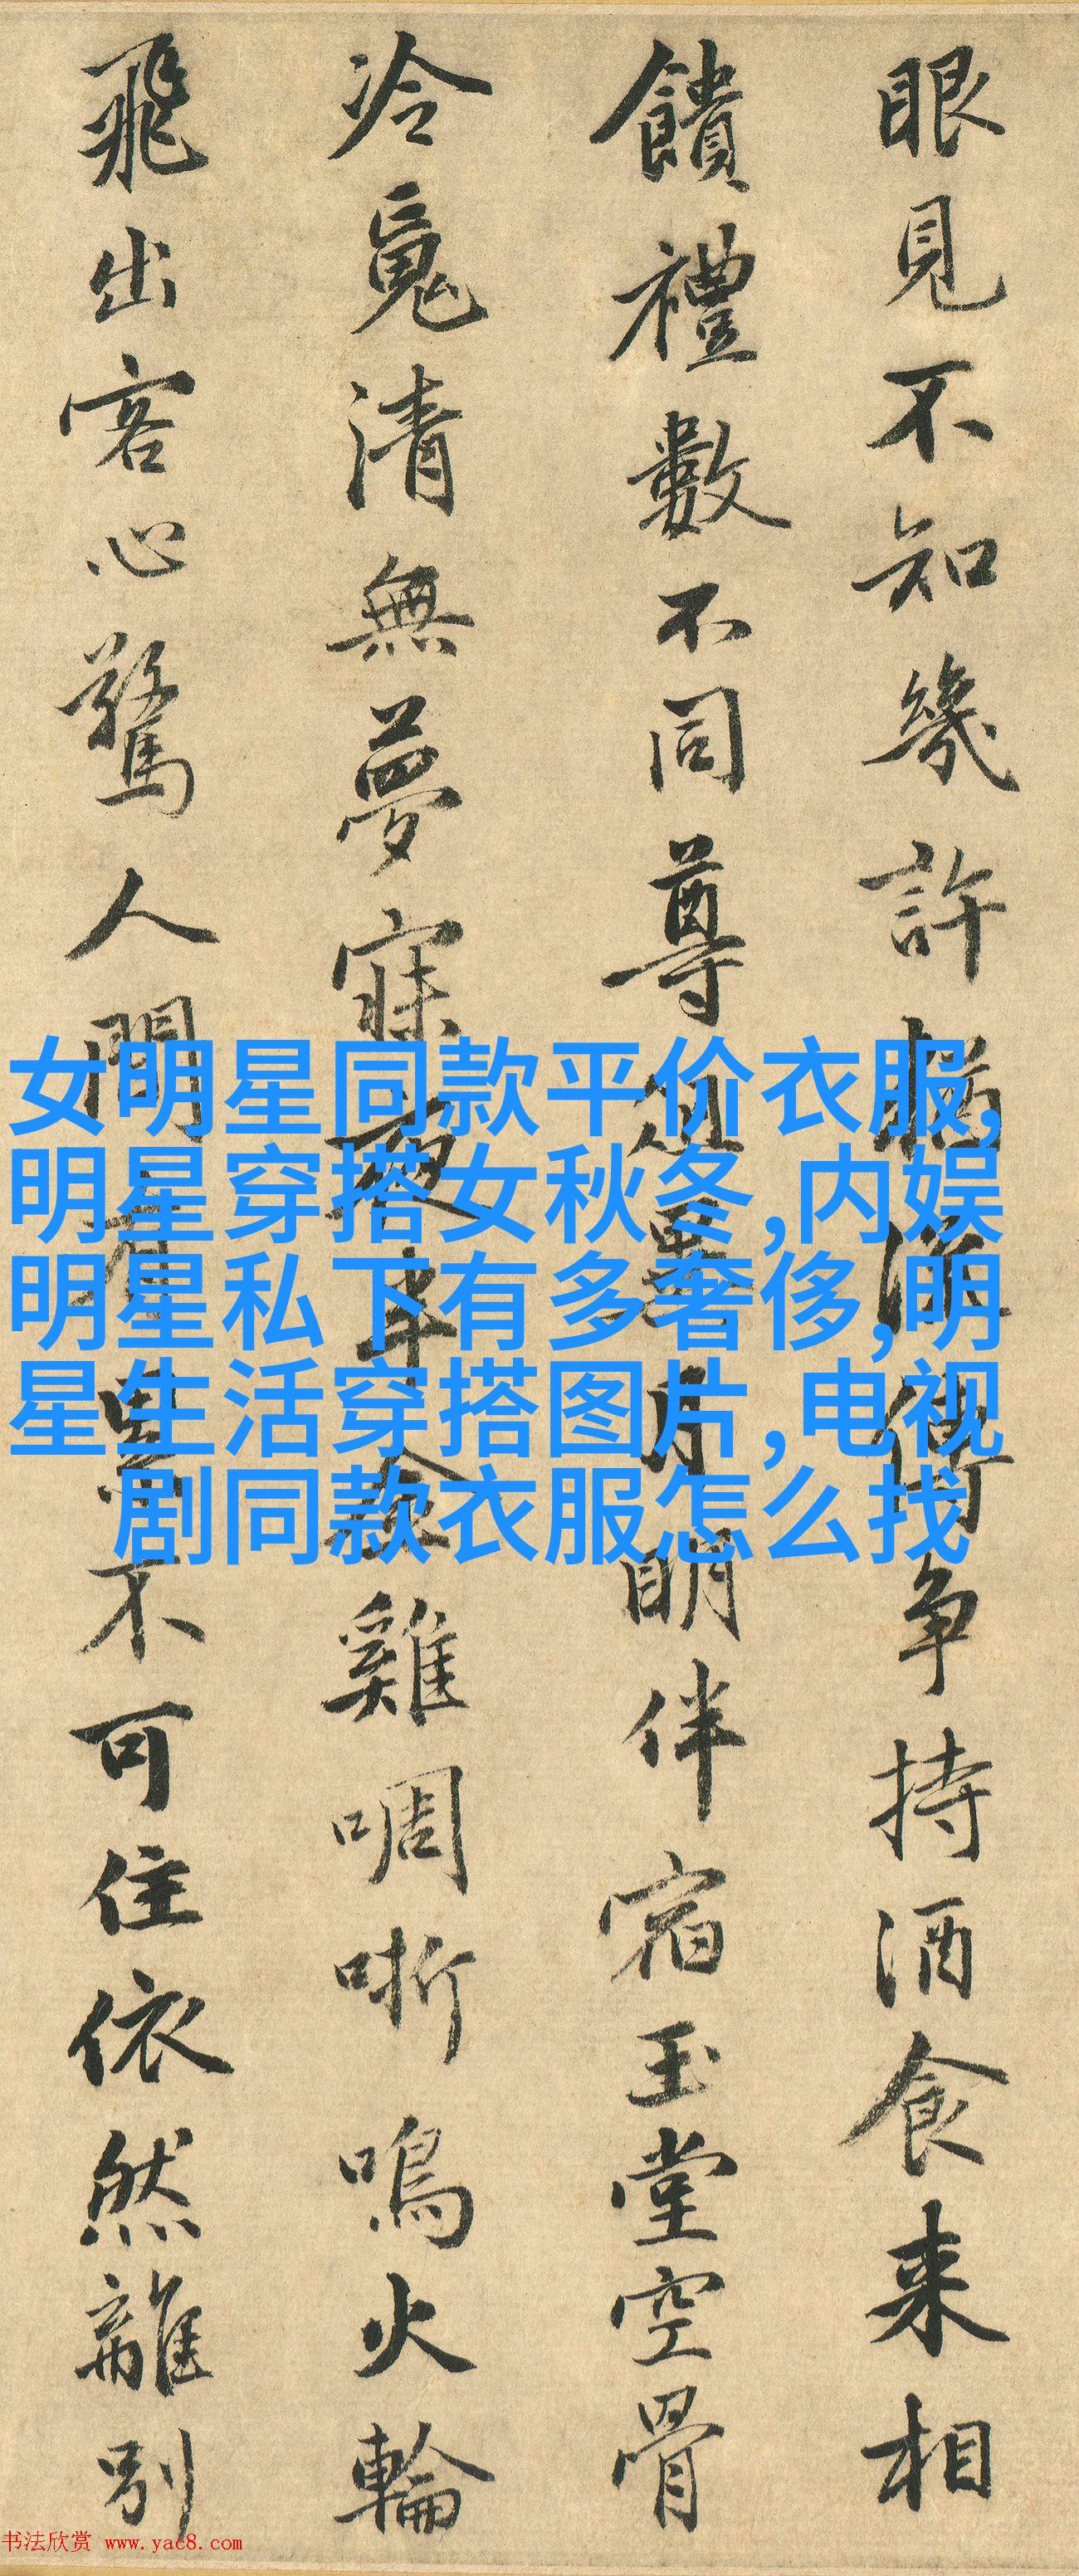 眼見不知幾許猶流傳争持酒食来相
饋禮數不同尊俎異月明伴宿玉堂空骨
冷魂清無夢寐夜半金雞啁哳鳴火輪
飛出客心驚人間有累不可住依然離別
女明星同款平价衣服,
明星穿搭女秋冬,内娱
明星私下有多奢侈,明
星生活穿搭图片,电视
剧同款衣服怎么找
书法欣赏 www.yac8.com